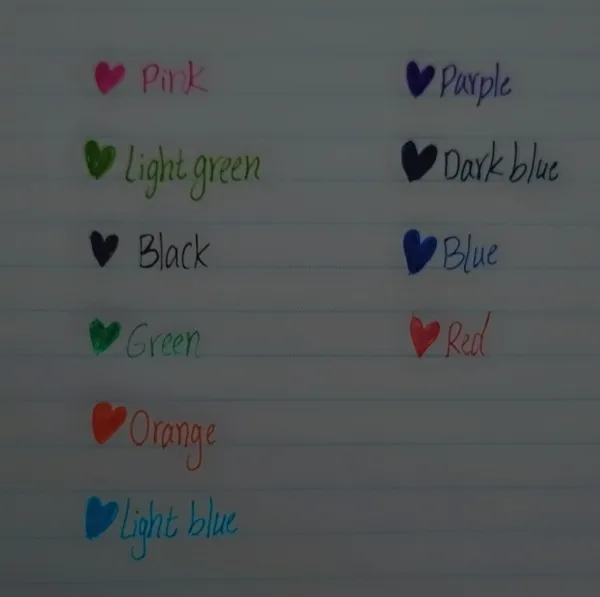 Pink
Light green
Black
Green
Orange
Light blue
Purple
Dark blue
Blue
Red